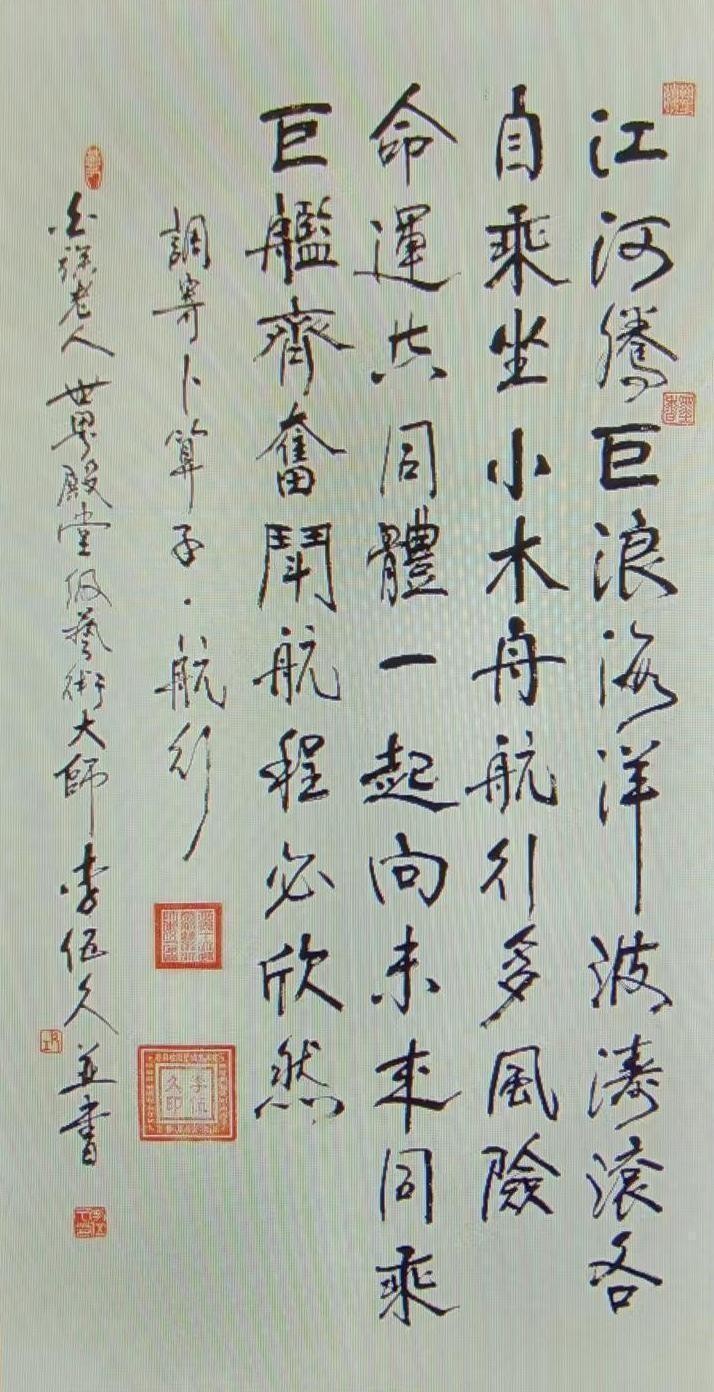 江河騰巨浪海洋波濤滾各
自乘坐小木舟航行多風險
命運共同體一起向未來同乘
巨艦齊奮鬪航程必欣然
調寄卜算子·航行
老人世界殿堂級藝術大師李伍久並書
李伍久印